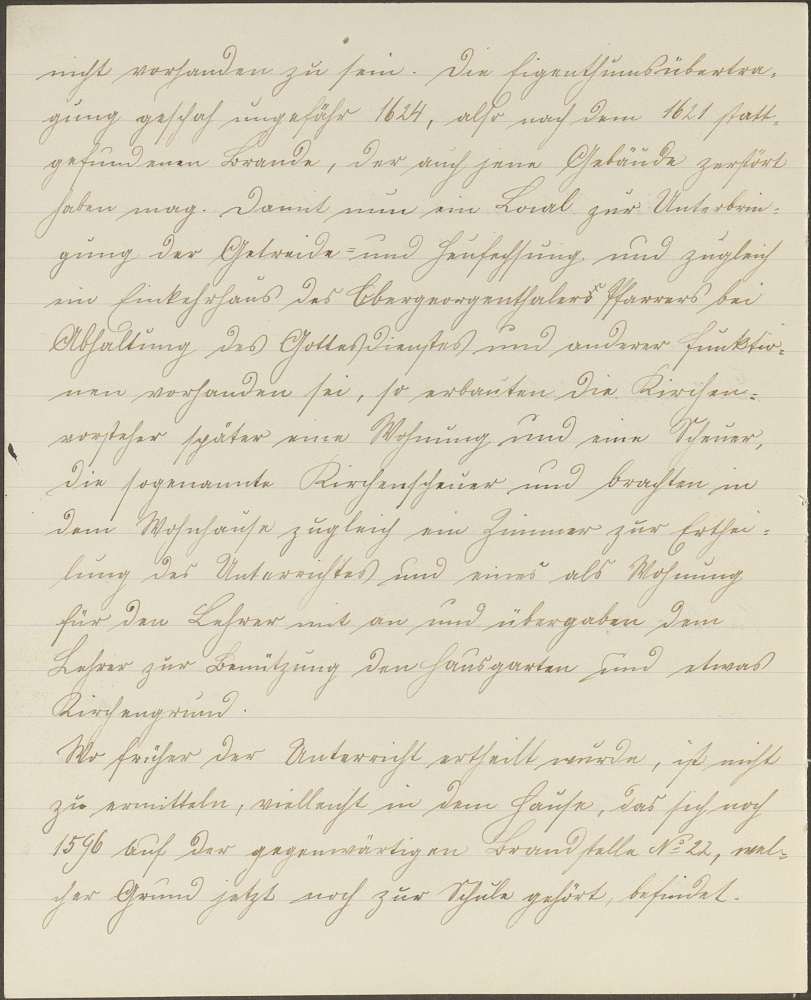 nicht vorhanden zu sein. Die Eigenthumsübertra-
gung geschah ungefähr 1624, also nach dem 1621 statt-
gefundenen Brande, der auch jene Gebäude zerstört
haben mag. Damit nun ein Local zur Unterbrin-
gung der Getreide- und Heufechsung und zugleich
ein Einkehrhaus des Obergeorgenthalers Pfarrers bei
Abhaltung des Gottesdienstes und anderer Funktio-
nen vorhanden sei, so erbauten die Kirchen-
vorsteher später eine Wohnung und eine Scheuer,
die sogenannte Kirchenscheuer und brachten in
dem Wohnhause zugleich ein Zimmer zur Erthei-
lung des Unterrichtes und eines als Wohnung
für den Lehrer mit an und übergaben dem
Lehrer zur Benützung den Hausgarten und etwas
Kirchengrund.
Wo früher der Unterricht ertheilt wurde, ist nicht
zu ermitteln, vielleicht in dem Hause, das sich noch
1596 auf der gegenwärtigen Brandstelle No 22, wel-
cher Grund jetzt noch zur Schule gehört, befindet.